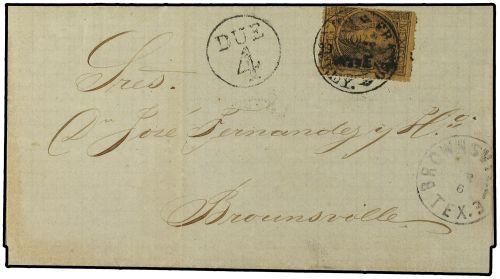 DUE
4
Sres.
Dn José Fernandez y Hº
Brounsville
BROWNSVI
6
TEX.